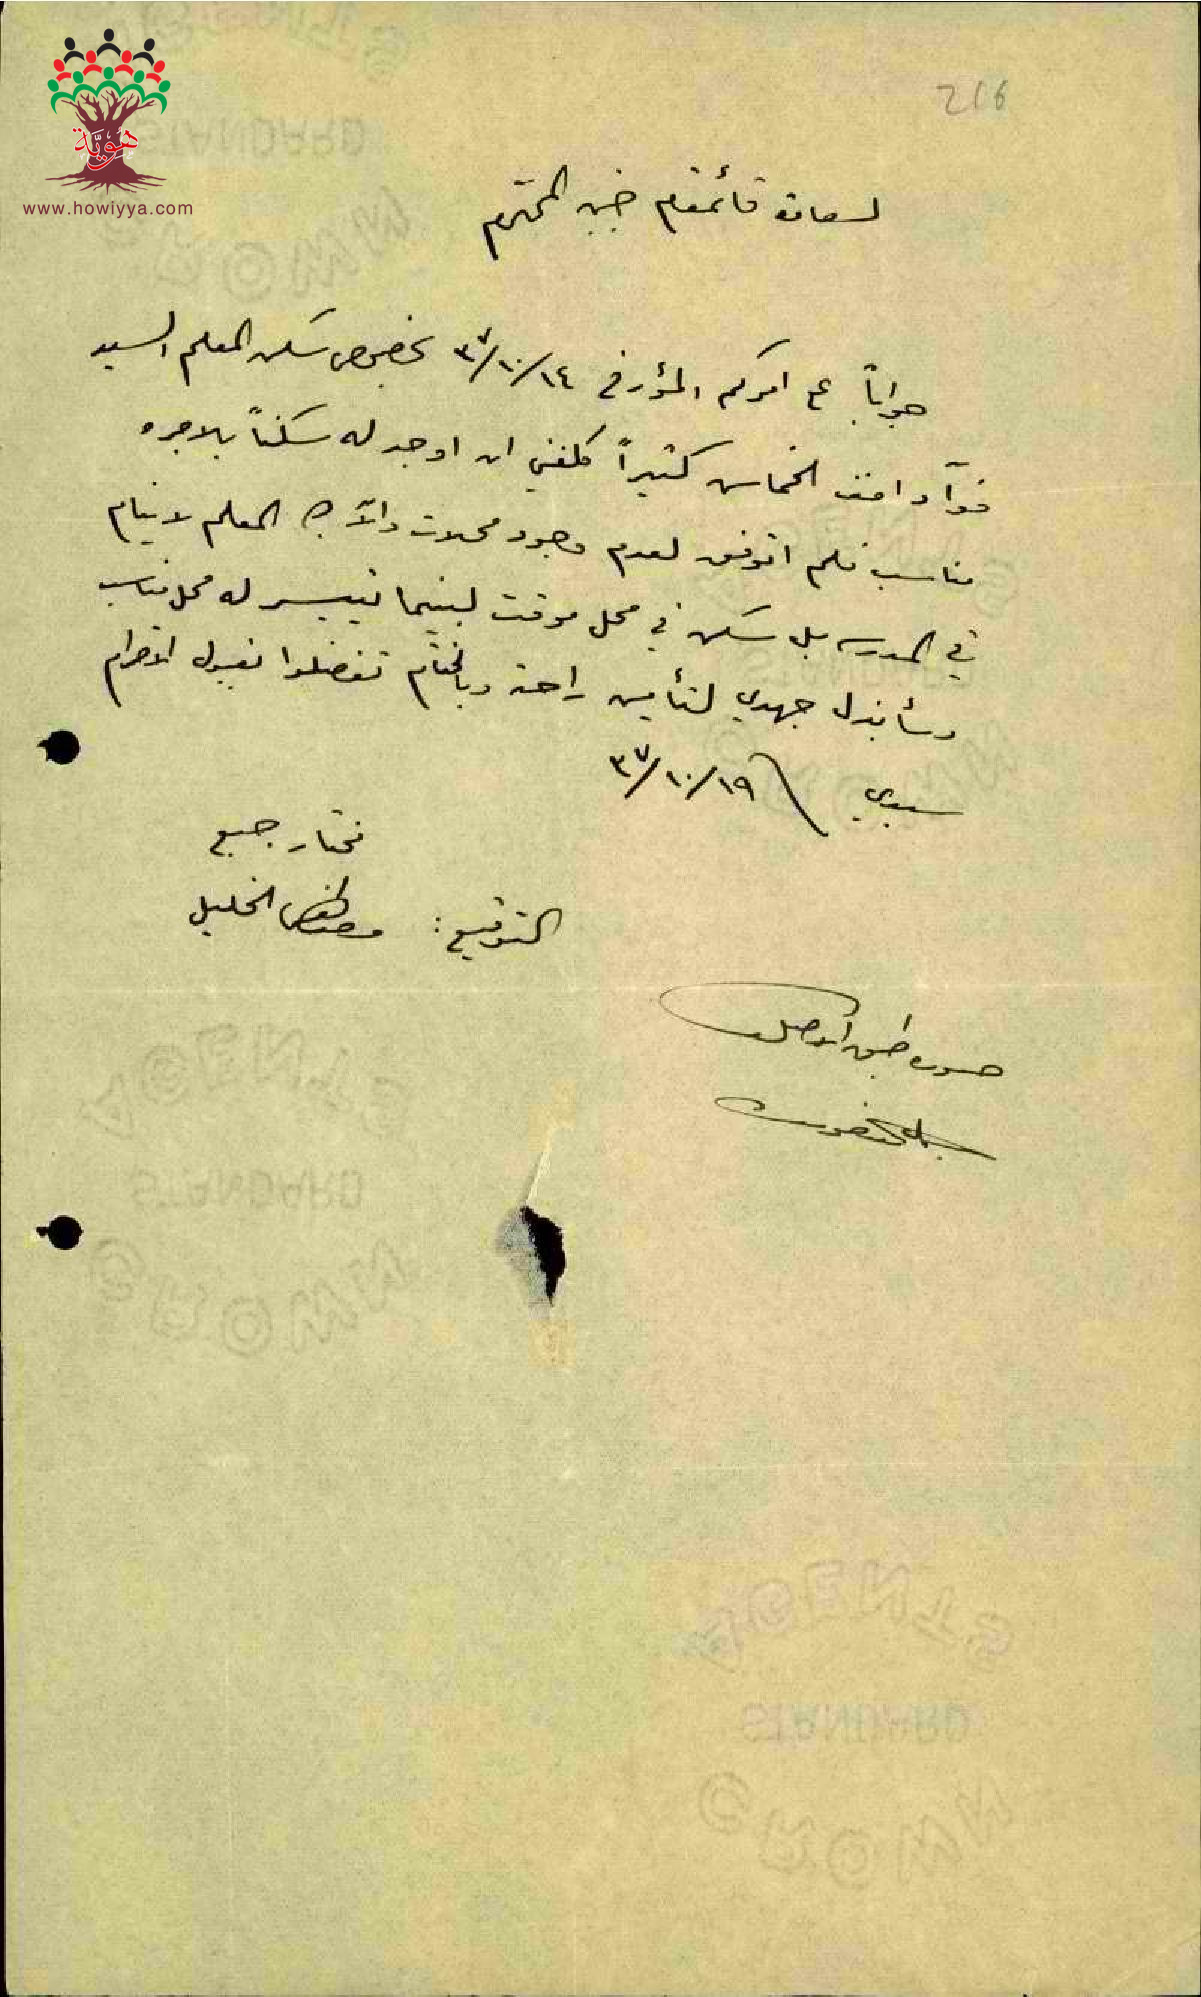 هويّة
www.howiyya.com
216
لسعادة قائمقام جنين المحترم
جواباً على امركم المؤرخ ٣٧/١٠/١٤ بخصوص سكن المعلم السيد
فوآد افندي الخماس كثيراً كلفني ان اوجد له سكناً بالاجره
مناسب فلم اتوفق لعدم وجود محلات والآن المعلم لا ينام
في المدرسه بل سكن في محل موقت لبينما تيسر له محل مناسب
وسأبذل جهدي لتأمين راحته وبالختام تفضلوا بقبول الاحترام
سيدي ٣٧/١٠/١٩
مختار جبع
التوقيع: مصطفى الخليل
صورة طبق الاصل
AGENTS
STANDARD
CROWN